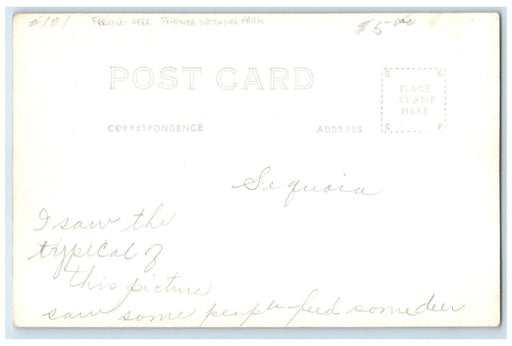 #181 FEEDING DEER SEQUOIA NATIONAL PARK
$5.00
POST CARD
CORRESPONDENCE
ADDRESS
PLACE
STAMP
HERE
Sequoia
I saw the
typical of
this picture
saw some people feed some deer